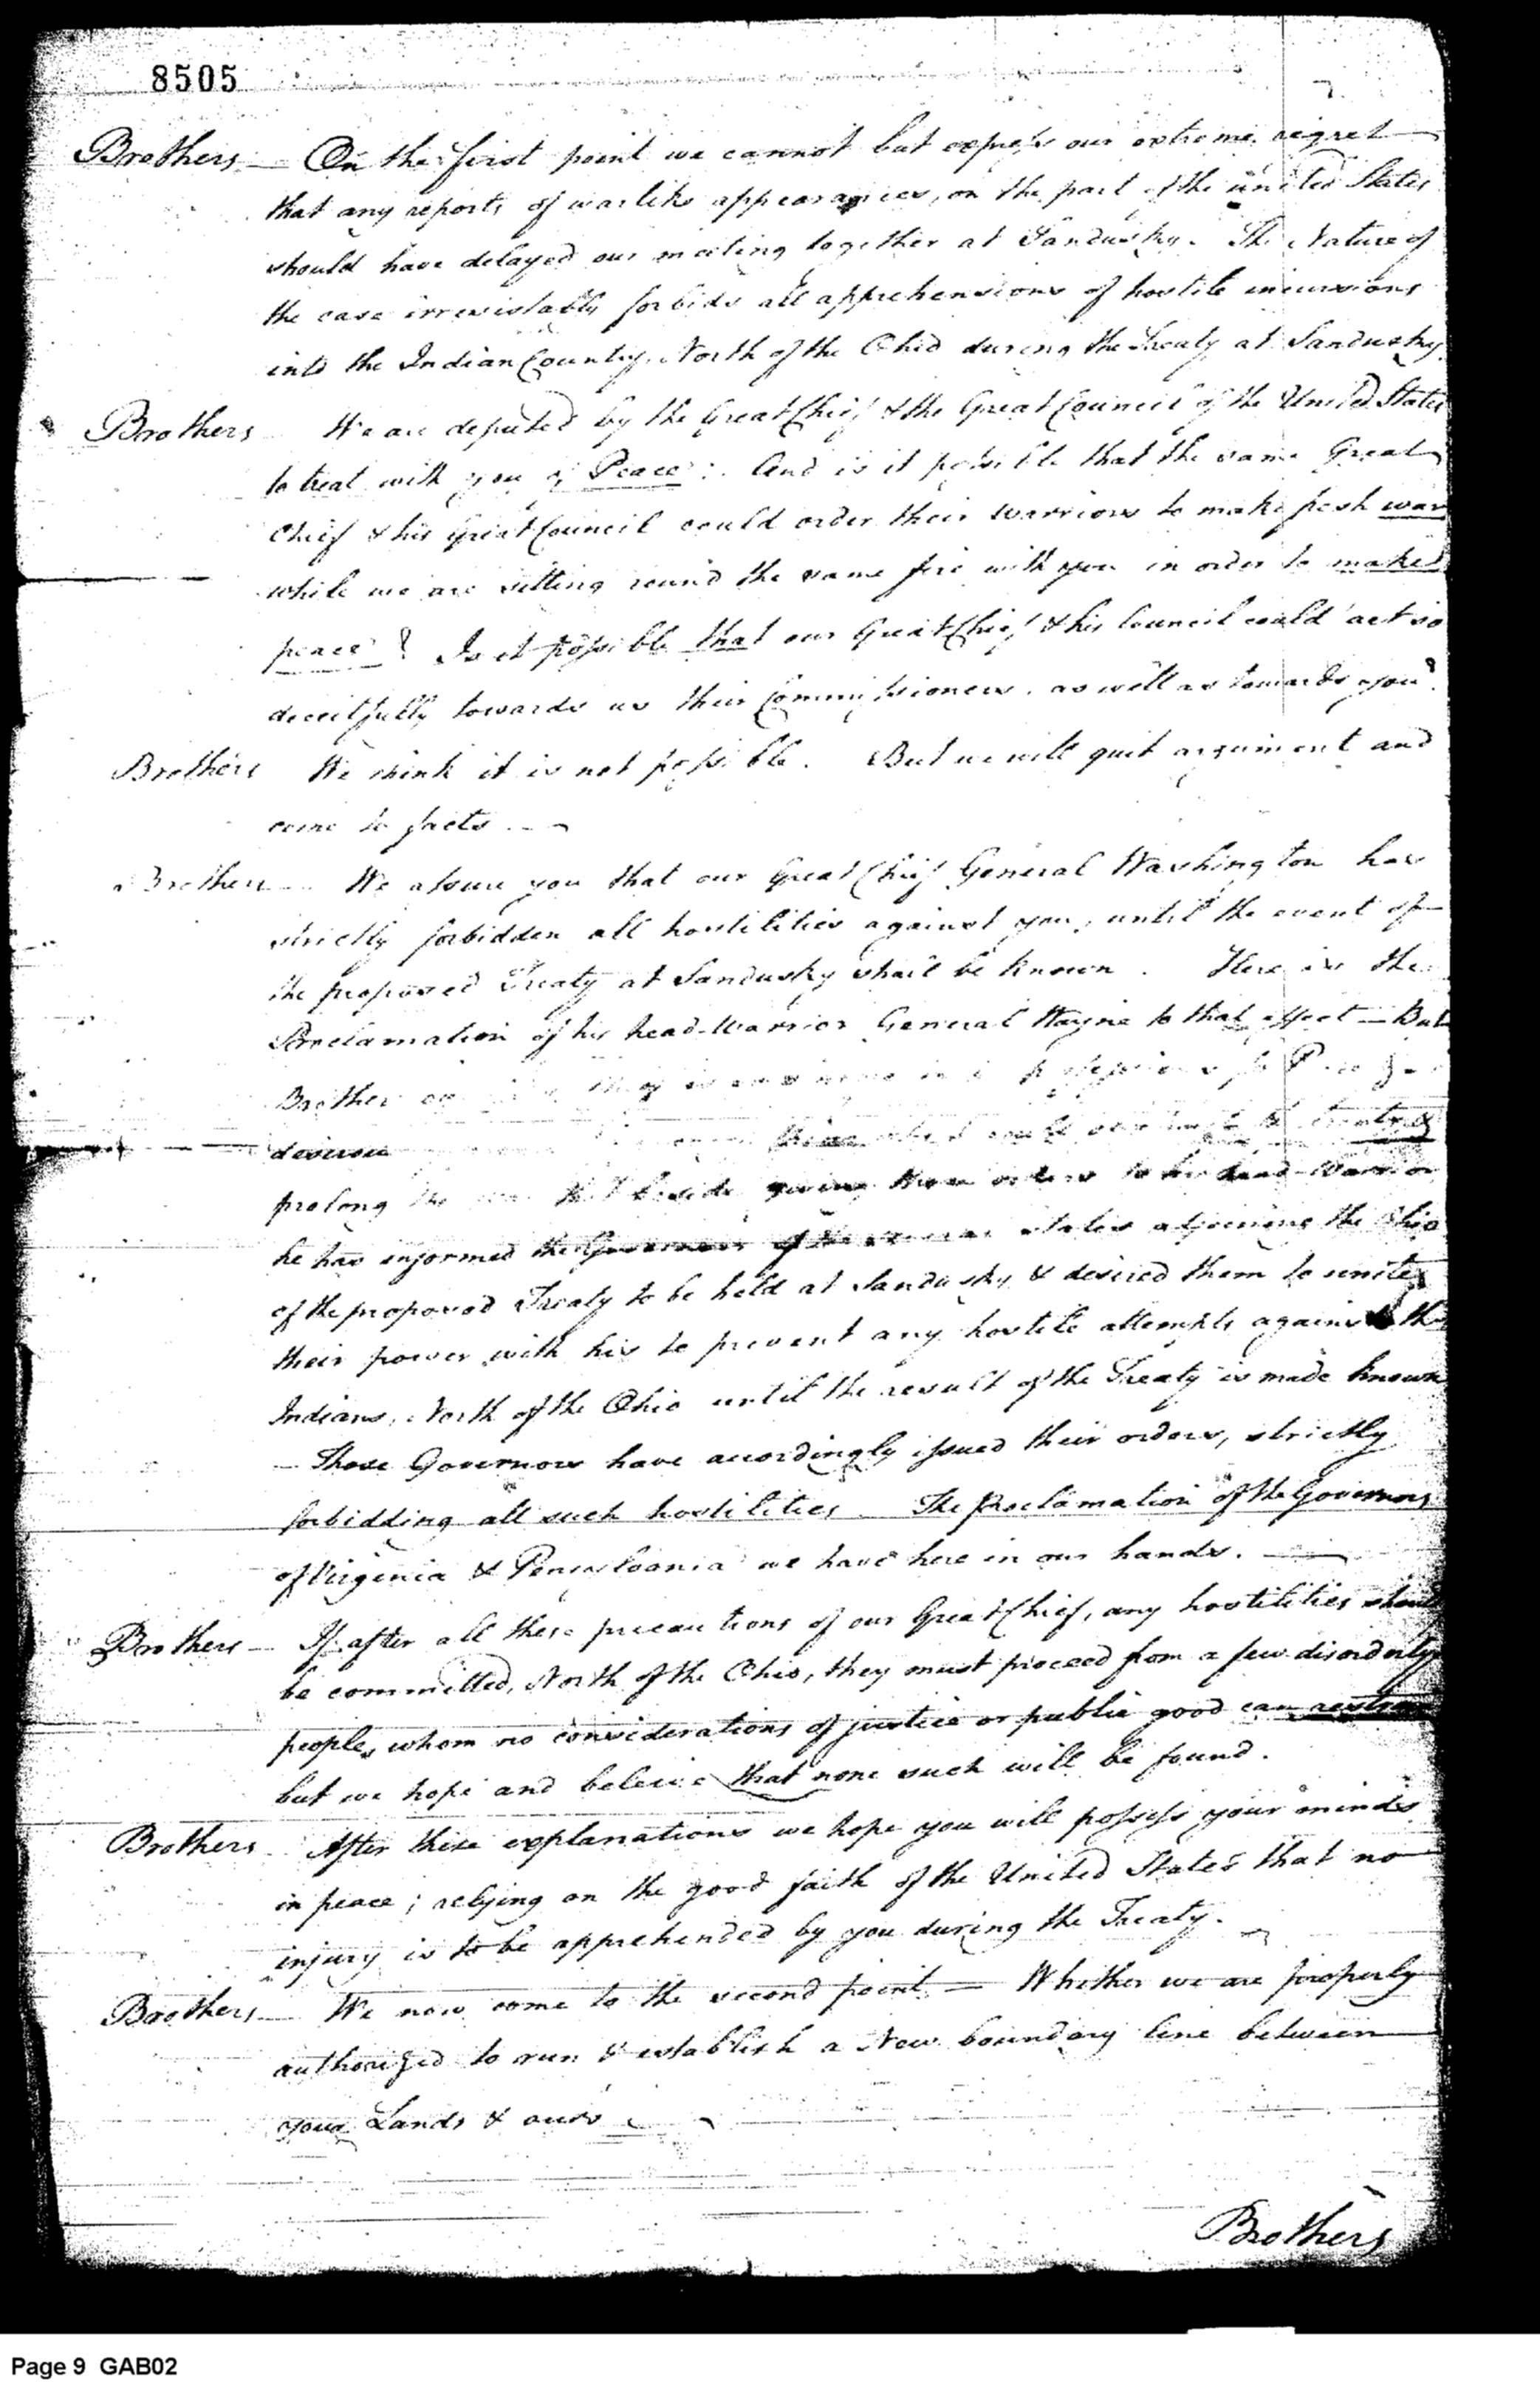 8505
Brothers — On the first point we cannot but express our extreme regret
that any reports of warlike appearances, on the part of the united States
should have delayed our meeting together at Sandusky. The Nature of
the case irresistably forbids all apprehensions of hostile incursions
into the Indian Country, North of the Ohio during the Treaty at Sandusky.
Brothers We are deputed by the Great Chief & the Great Council of the United States
to treat with you of Peace: And is it possible that the same Great
Chief & his Great Council could order their warriors to make fresh war
while we are sitting round the same fire with you in order to make
peace? Is it possible that our Great Chief & his Council could act so
deceitfully towards us their Commissioners, as well as towards you?
Brothers We think it is not possible. But we will quit argument and
come to facts —
Brothers — We assure you that our Great Chief General Washington has
strictly forbidden all hostilities against you, until the event of
the proposed Treaty at Sandusky shall be known. Here is the
Proclamation of his head-Warrior General Wayne to that effect — But
Brothers professions
desirous
prolong the giving orders to his head-Warrior
he has informed the Governors of the States adjoining the Ohio
of the proposed Treaty to be held at Sandusky & desired them to unite
their power with his to prevent any hostile attempts against the
Indians, North of the Ohio until the result of the Treaty is made known
— Those Governors have accordingly issued their orders, strictly
forbidding all such hostilities The Proclamation of the Governors
of Virginia & Pensylvania we have here in our hands. —
Brothers — If after all these precautions of our Great Chief, any hostilities should
be committed, North of the Ohio, they must proceed from a few disorderly
people, whom no considerations of justice or public good can restrain
but we hope and beleive that none such will be found.
Brothers After these explanations we hope you will possess your minds
in peace; relying on the good faith of the United States that no
injury is to be apprehended by you during the Treaty.
Brothers — We now come to the second point — Whether we are properly
authorized to run & establish a New boundary line between
your Lands & ours
Brothers
Page 9 GAB02